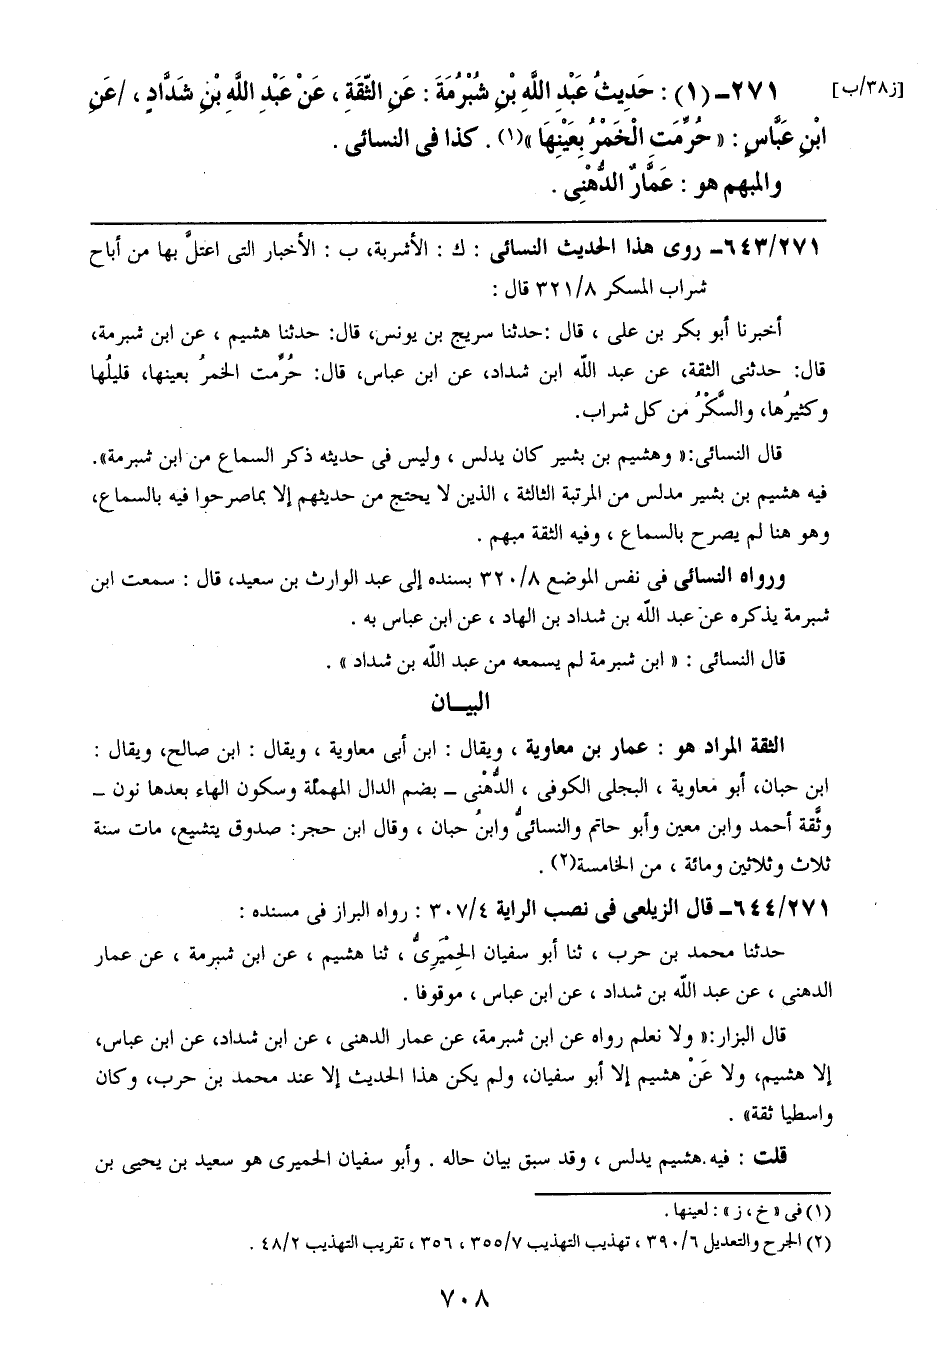 [ز٣٨/ب]
٢٧١ــ (١) : حَدِيثُ عَبْدِ اللَّهِ بْنِ شُبْرُمَةَ : عَنِ الثِّقَةِ ، عَنْ عَبْدِ اللَّهِ بْنِ شَدَّادٍ ، /عَنِ
ابْنِ عَبَّاسٍ : « حُرِّمَتِ الْخَمْرُ بِعَيْنِهَا »(١) . كذا فى النسائى .
والمبهم هو : عَمَّارٌ الدُّهْنِى .
٦٤٣/٢٧١ــ روى هذا الحديث النسائى : ك : الأشربة، ب : الأخبار التى اعتلَّ بها من أباح
شراب المسكر ٣٢١/٨ قال :
أخبرنا أبو بكر بن على ، قال :حدثنا سريج بن يونس، قال: حدثنا هشيم ، عن ابن شبرمة،
قال: حدثنى الثقة، عن عبد اللّه ابن شداد، عن ابن عباس، قال: حُرِّمت الخمرُ بعينها، قليلُها
وكثيرُها، والسَّكْرُ من كل شراب.
قال النسائى:« وهشيم بن بشير كان يدلس ، وليس فى حديثه ذكر السماع من ابن شبرمة».
فيه هشيم بن بشير مدلس من المرتبة الثالثة ، الذين لا يحتج من حديثهم إلا بماصرحوا فيه بالسماع،
وهو هنا لم يصرح بالسماع ، وفيه الثقة مبهم .
ورواه النسائى فى نفس الموضع ٣٢٠/٨ بسنده إلى عبد الوارث بن سعيد، قال : سمعت ابن
شبرمة يذكره عن عبد اللّه بن شداد بن الهاد ، عن ابن عباس به .
قال النسائى : « ابن شبرمة لم يسمعه من عبد اللّه بن شداد » .
البيــان
الثقة المراد هو : عمار بن معاوية ، ويقال : ابن أبى معاوية ، ويقال : ابن صالح، ويقال :
ابن حبان، أبو معاوية ، البجلى الكوفى ، الدُّهْنى ــ بضم الدال المهملة وسكون الهاء بعدها نون ــ
وثَّقة أحمد وابن معين وأبو حاتم والنسائىُّ وابنُ حبان ، وقال ابن حجر: صدوق يتشيع، مات سنة
ثلاث وثلاثين ومائة ، من الخامسة(٢) .
٦٤٤/٢٧١ــ قال الزيلعى فى نصب الراية ٣٠٧/٤ : رواه البزار فى مسنده :
حدثنا محمد بن حرب ، ثنا أبو سفيان الحِمْيَرِىُّ ، ثنا هشيم ، عن ابن شبرمة ، عن عمار
الدهنى ، عن عبد اللّه بن شداد ، عن ابن عباس ، موقوفا .
قال البزار:« ولا نعلم رواه عن ابن شبرمة، عن عمار الدهنى ، عن ابن شداد، عن ابن عباس،
إلا هشيم، ولا عَنْ هشيم إلا أبو سفيان، ولم يكن هذا الحديث إلا عند محمد بن حرب، وكان
واسطيا ثقة» .
قلت : فيه هشيم يدلس ، وقد سبق بيان حاله . وأبو سفيان الحميرى هو سعيد بن يحيى بن
(١) فى « خ ، ز » : لعينها .
(٢) الجرح والتعديل ٣٩٠/٦ ، تهذيب التهذيب ٣٥٥/٧ ، ٣٥٦ ، تقريب التهذيب ٤٨/٢ .
٧٠٨